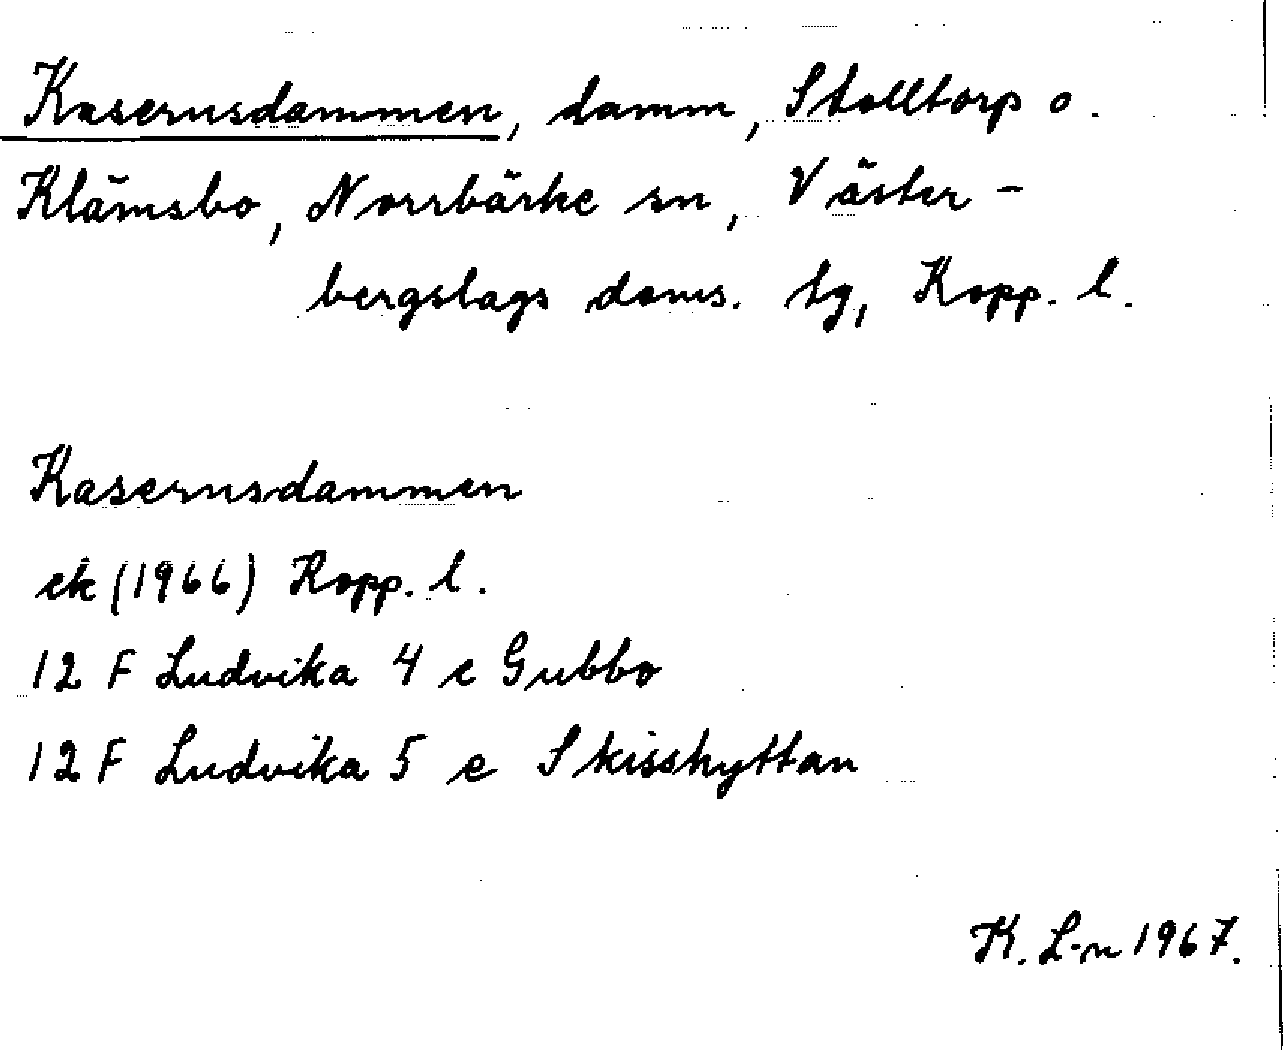 Kasernsdammen, damm, Stolltorp o.
Klämsbo, Norrbärke sn, Väster-
bergslags doms. tg, Kopp. l.
Kasernsdammen
ek (1966) Kopp. l.
12 F Ludvika 4 e Gubbo
12 F Ludvika 5 e Skisshyttan
K. L-n 1967.